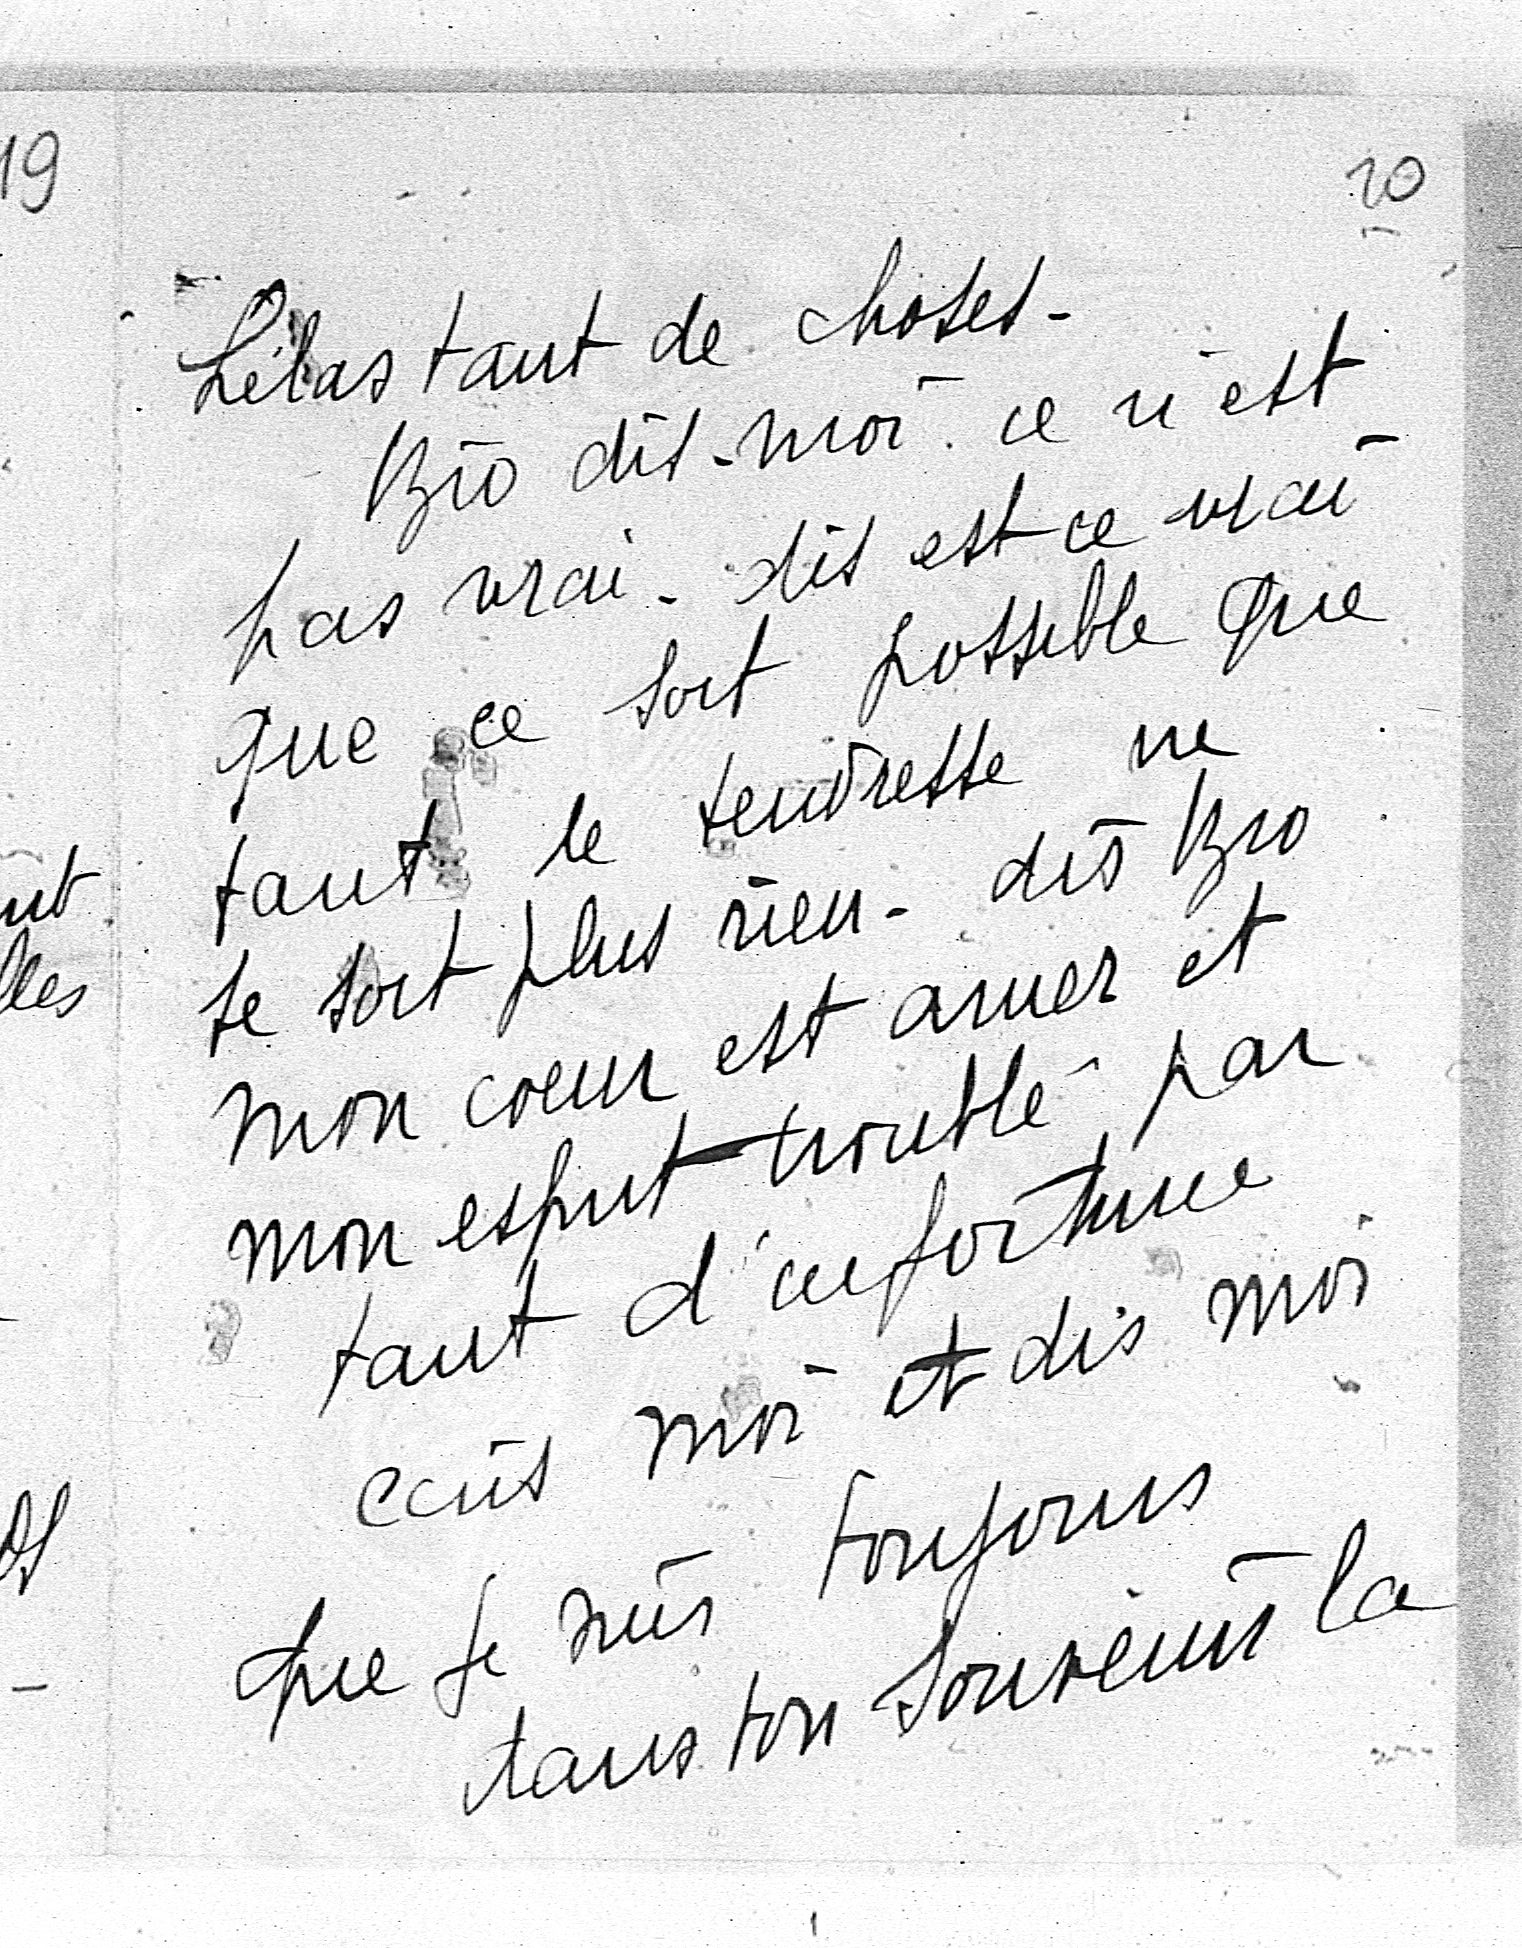 19
20
hélas tant de choses -
Bio dis-moi. ce n'est
pas vrai - dis est-ce vrai
que ce soit possible que
tant de tendresse ne
se soit plus rien - dis Bio
mon coeur est amer et
mon esprit troublé par
tant d'infortune
ecris moi et dis moi
que je suis toujours
dans ton souvenir la
ut
lles